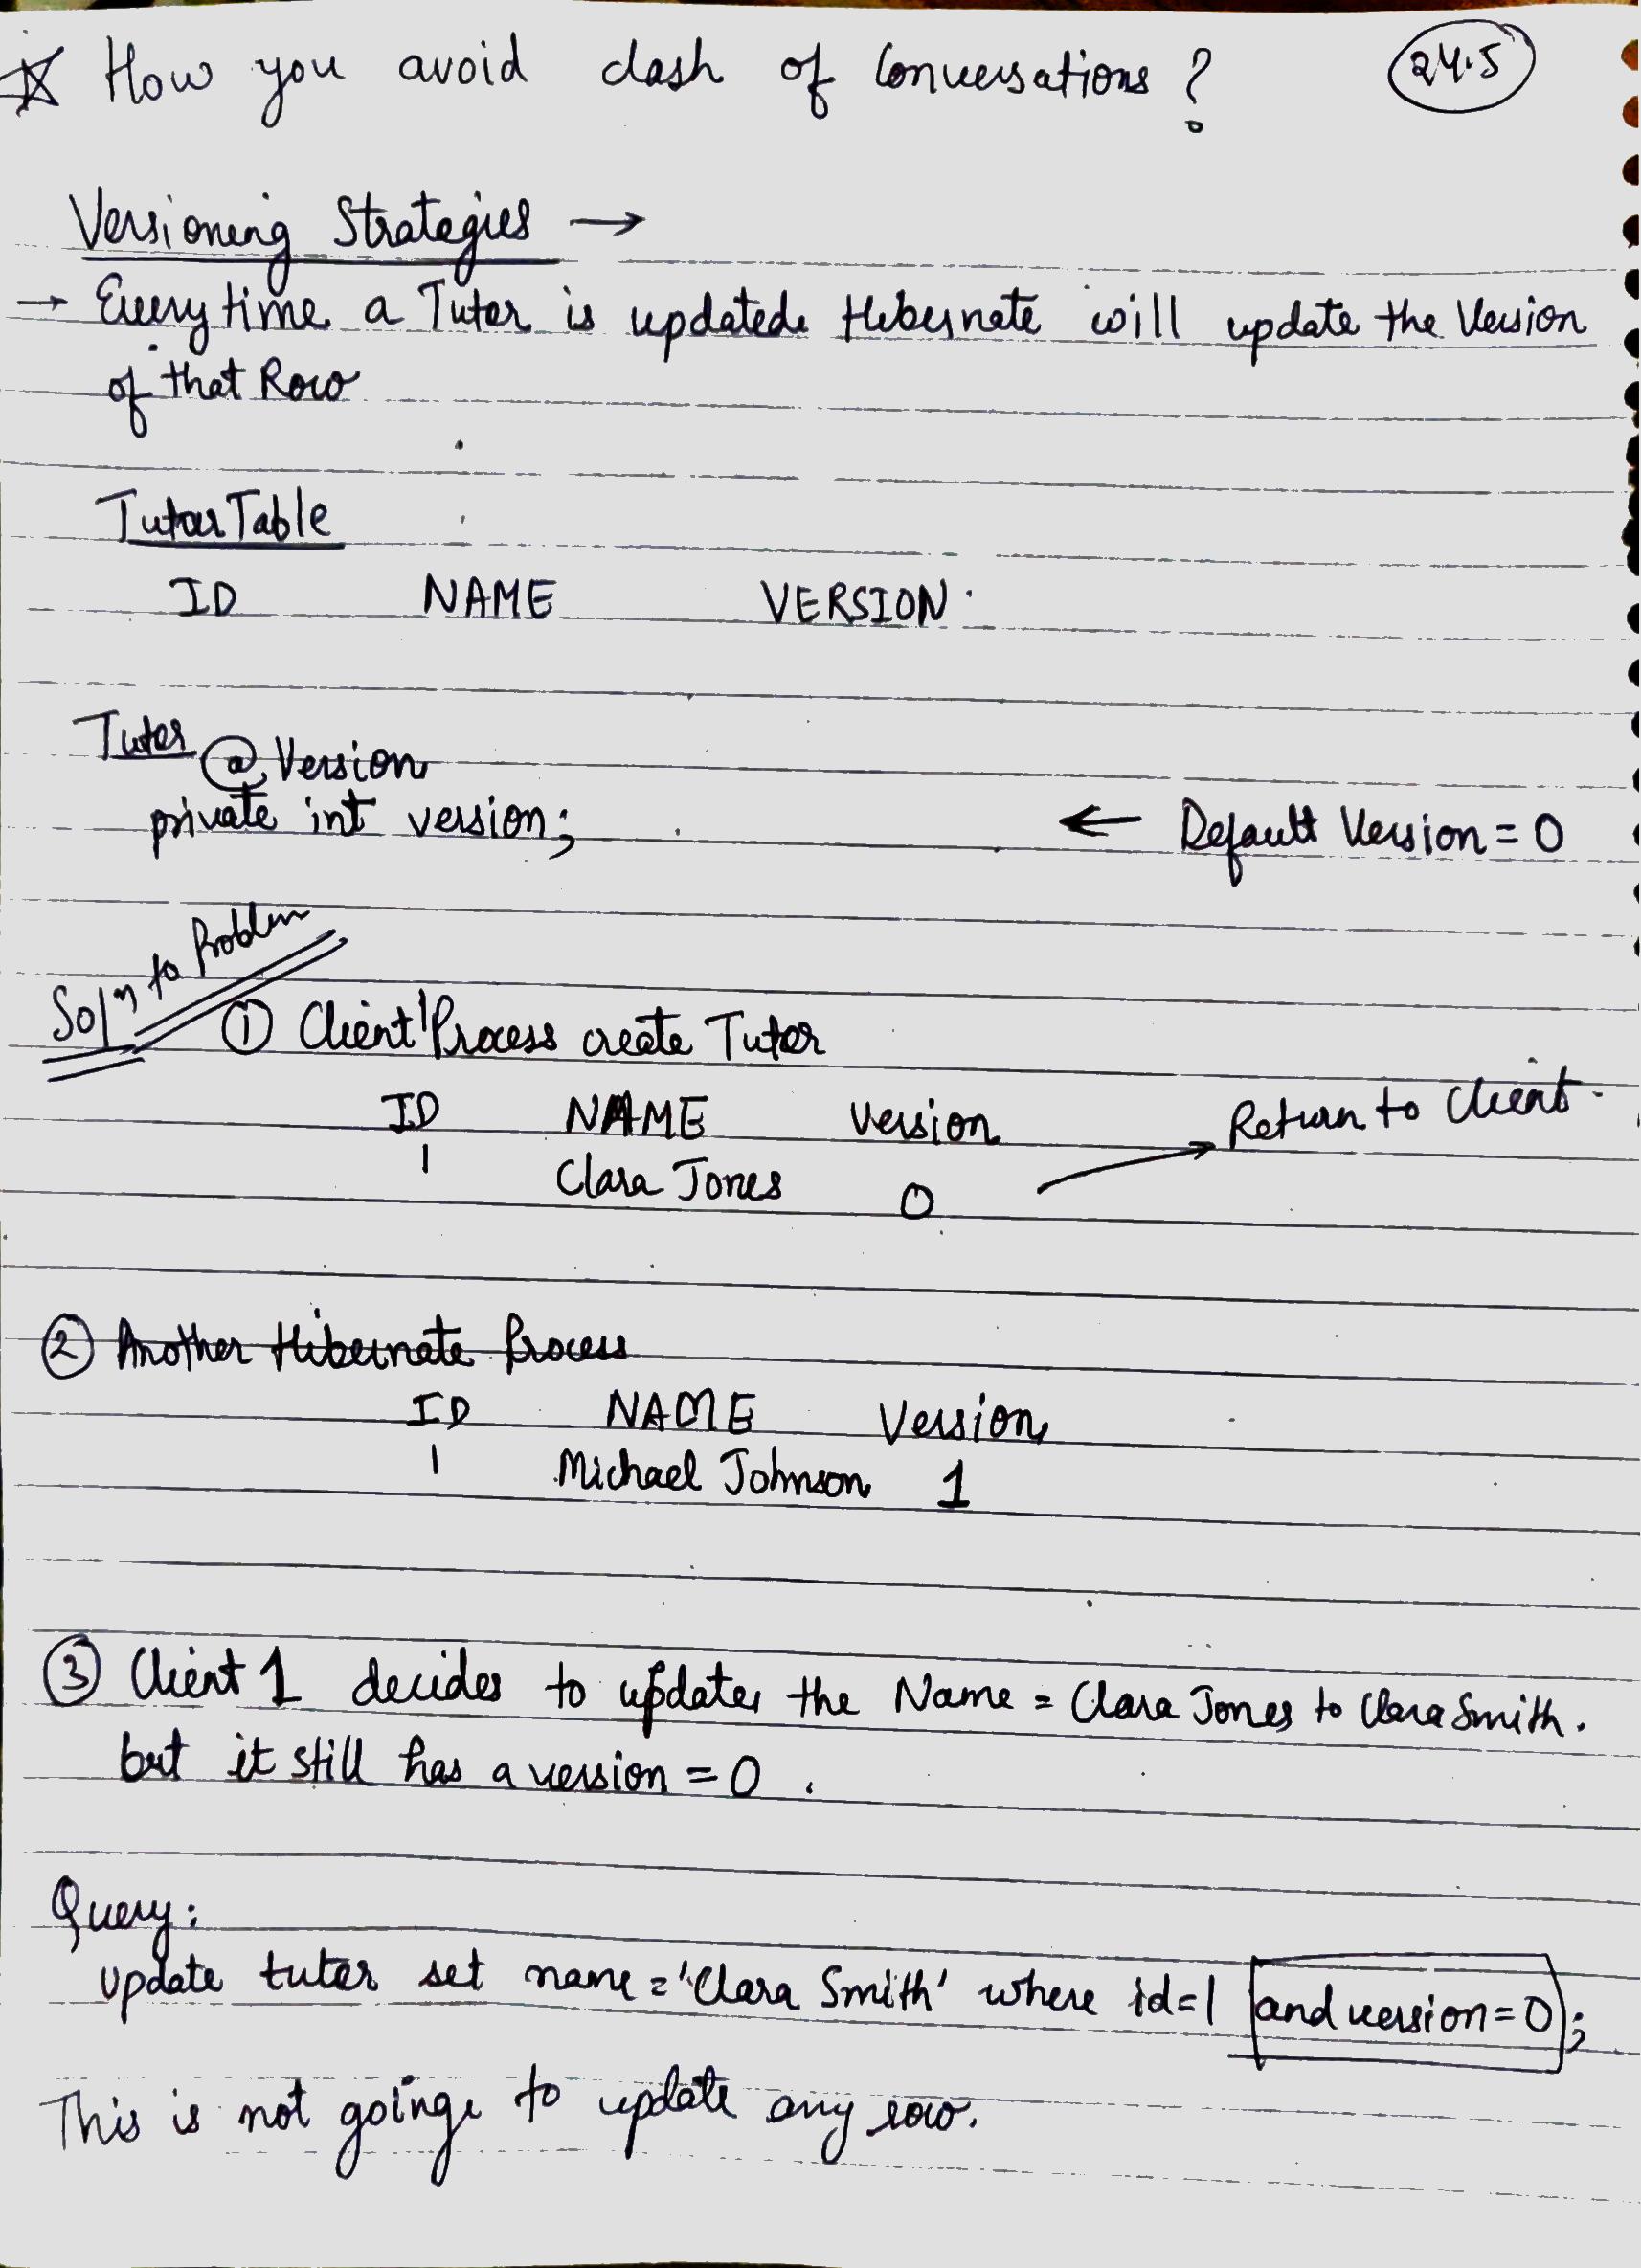 ☆ How you avoid clash of Conversations ? 24.5
Versioning Strategies →
→ Every time a Tutor is updated. Hibernate will update the Version
of that Row
Tutor Table
ID NAME VERSION
Tutor @Version
private int version; ← Default Version = 0
Solⁿ to Problem
① Client Process create Tutor
ID NAME Version Return to Client
1 Clara Jones 0
② Another Hibernate Process
ID NAME Version
1 Michael Johnson 1
③ Client 1 decides to update the Name = Clara Jones to Clara Smith.
but it still has a version = 0 .
Query:
update tutor set name = 'Clara Smith' where id=1 and version=0;
This is not going to update any row.